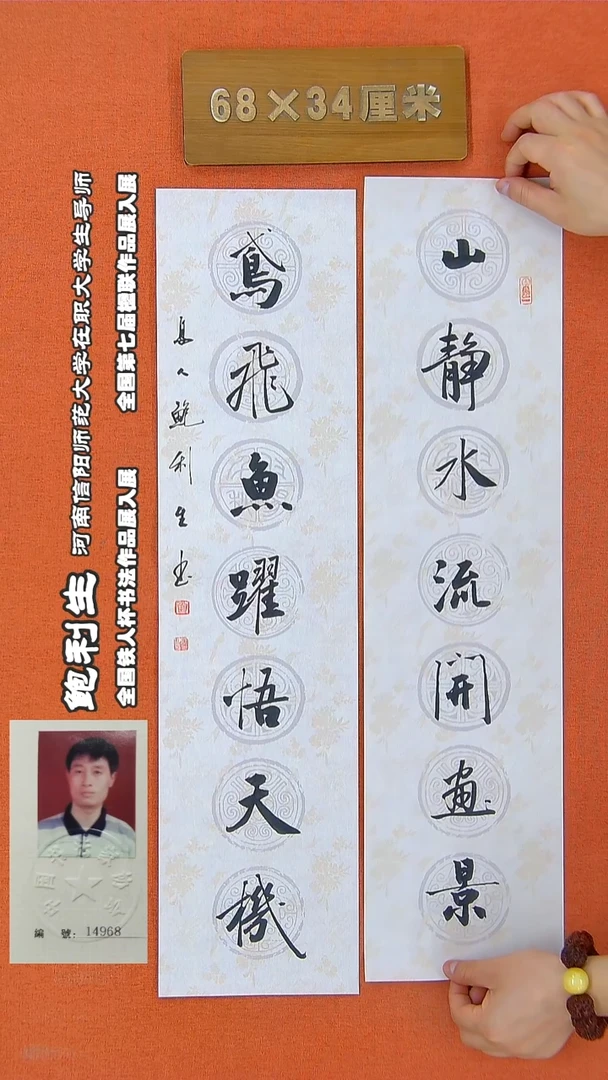 68×34厘米
山靜水流開畫景
鳶飛魚躍悟天機
鮑利生书
鲍利生 河南信阳师范大学在职大学生导师
全国铁人杯书法作品展入展
全国第七届楹联作品展入展
編 號：14968